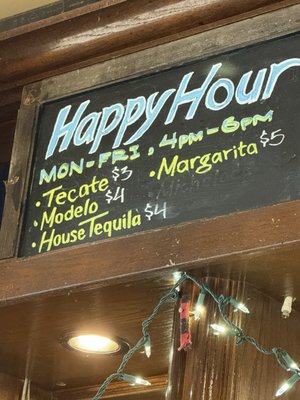 Happy Hour
MON-FRI, 4PM-6PM
• Tecate $3
• Modelo $4
• House Tequila $4
• Margarita $5